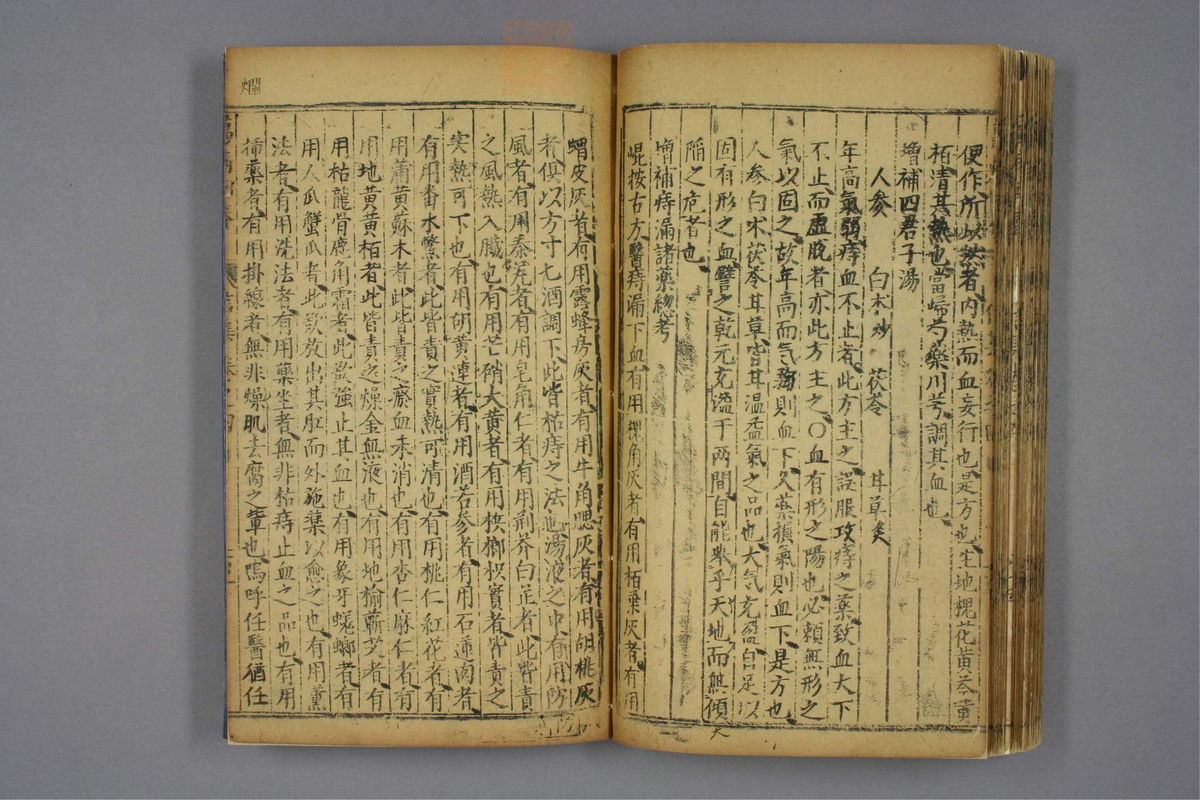 便作所以然者內熱而血妄行也是方也生地槐花黃芩黃
栢清其熱也當歸芍藥川芎調其血也
增補四君子湯
人參 白朮炒 茯苓 甘草炙
年高氣弱痔血不止者此方主之誤服攻痔之藥致血大下
不止而虛脫者亦此方主之○血有形之陽也必賴無形之
氣以固之故年高而气弱則血下久藥損氣則血下是方也
人參白朮茯苓甘草皆甘溫益氣之品也大气充盈自足以
固有形之血譬之乾元充溢于兩間自能舉乎天地而無傾
陷之危者也
增補痔漏諸藥總考
崐按古方醫痔漏下血有用槐角灰者有用栢葉灰者有用
蝟皮灰者有用露蜂房灰者有用牛角腮灰者有用胡桃灰
者俱以方寸匕酒調下此皆枯痔之法也湯液之中有用防
風者有用秦艽者有用皂角仁者有用荊芥白芷者此皆責
之風熱入臟也有用芒硝大黃者有用檳榔枳實者皆責之
実熱可下也有用胡黃連者有用酒苦參者有用石蓮肉者
有用番木鱉者此皆責之實熱可清也有用桃仁紅花者有
用蒲黃蘇木者此皆責之瘀血未消也有用杏仁麻仁者有
用地黃黃栢者此皆責之燥金無液也有用地榆蘄艾者有
用枯龍骨鹿角霜者此欲強止其血也有用象牙蜣螂者有
用人爪蟹爪者此欲放出其肛而外施藥以愈之也有用薰
法者有用洗法者有用藥坐者無非枯痔止血之品也有用
揷藥者有用掛線者無非燥肌去腐之輩也嗚呼任醫猶任
爛